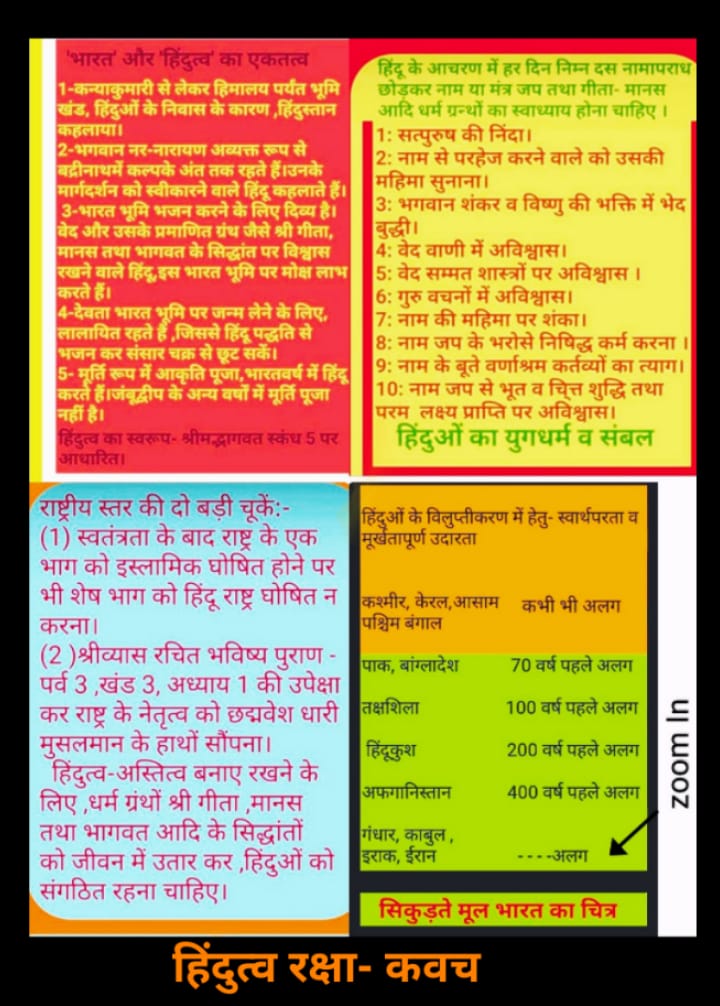 'भारत' और 'हिंदुत्व' का एकतत्व
1-कन्याकुमारी से लेकर हिमालय पर्यंत भूमि
खंड, हिंदुओं के निवास के कारण ,हिंदुस्तान
कहलाया।
2-भगवान नर-नारायण अव्यक्त रूप से
बद्रीनाथमें कल्पके अंत तक रहते हैं।उनके
मार्गदर्शन को स्वीकारने वाले हिंदू कहलाते हैं।
3-भारत भूमि भजन करने के लिए दिव्य है।
वेद और उसके प्रमाणित ग्रंथ जैसे श्री गीता,
मानस तथा भागवत के सिद्धांत पर विश्वास
रखने वाले हिंदू,इस भारत भूमि पर मोक्ष लाभ
करते हैं।
4-देवता भारत भूमि पर जन्म लेने के लिए,
लालायित रहते हैं ,जिससे हिंदू पद्धति से
भजन कर संसार चक्र से छूट सकें।
5- मूर्ति रूप में आकृति पूजा,भारतवर्ष में हिंदू
करते हैं।जंबूद्वीप के अन्य वर्षों में मूर्ति पूजा
नहीं है।
हिंदुत्व का स्वरूप- श्रीमद्भागवत स्कंध 5 पर
आधारित।
हिंदू के आचरण में हर दिन निम्न दस नामापराध
छोड़कर नाम या मंत्र जप तथा गीता- मानस
आदि धर्म ग्रन्थों का स्वाध्याय होना चाहिए ।
1: सत्पुरुष की निंदा।
2: नाम से परहेज करने वाले को उसकी
महिमा सुनाना।
3: भगवान शंकर व विष्णु की भक्ति में भेद
बुद्धी।
4: वेद वाणी में अविश्वास।
5: वेद सम्मत शास्त्रों पर अविश्वास ।
6: गुरु वचनों में अविश्वास।
7: नाम की महिमा पर शंका।
8: नाम जप के भरोसे निषिद्ध कर्म करना ।
9: नाम के बूते वर्णाश्रम कर्तव्यों का त्याग।
10: नाम जप से भूत व चित्त शुद्धि तथा
परम लक्ष्य प्राप्ति पर अविश्वास।
हिंदुओं का युगधर्म व संबल
राष्ट्रीय स्तर की दो बड़ी चूकें:-
(1) स्वतंत्रता के बाद राष्ट्र के एक
भाग को इस्लामिक घोषित होने पर
भी शेष भाग को हिंदू राष्ट्र घोषित न
करना।
(2 )श्रीव्यास रचित भविष्य पुराण -
पर्व 3 ,खंड 3, अध्याय 1 की उपेक्षा
कर राष्ट्र के नेतृत्व को छद्मवेश धारी
मुसलमान के हाथों सौंपना।
हिंदुत्व-अस्तित्व बनाए रखने के
लिए ,धर्म ग्रंथों श्री गीता ,मानस
तथा भागवत आदि के सिद्धांतों
को जीवन में उतार कर ,हिंदुओं को
संगठित रहना चाहिए।
हिंदुओं के विलुप्तीकरण में हेतु- स्वार्थपरता व
मूर्खतापूर्ण उदारता
कश्मीर, केरल,आसाम कभी भी अलग
पश्चिम बंगाल
पाक, बांग्लादेश 70 वर्ष पहले अलग
तक्षशिला 100 वर्ष पहले अलग
हिंदूकुश 200 वर्ष पहले अलग
अफगानिस्तान 400 वर्ष पहले अलग
गंधार, काबुल ,
इराक, ईरान ----अलग
zoom In
सिकुड़ते मूल भारत का चित्र
हिंदुत्व रक्षा- कवच